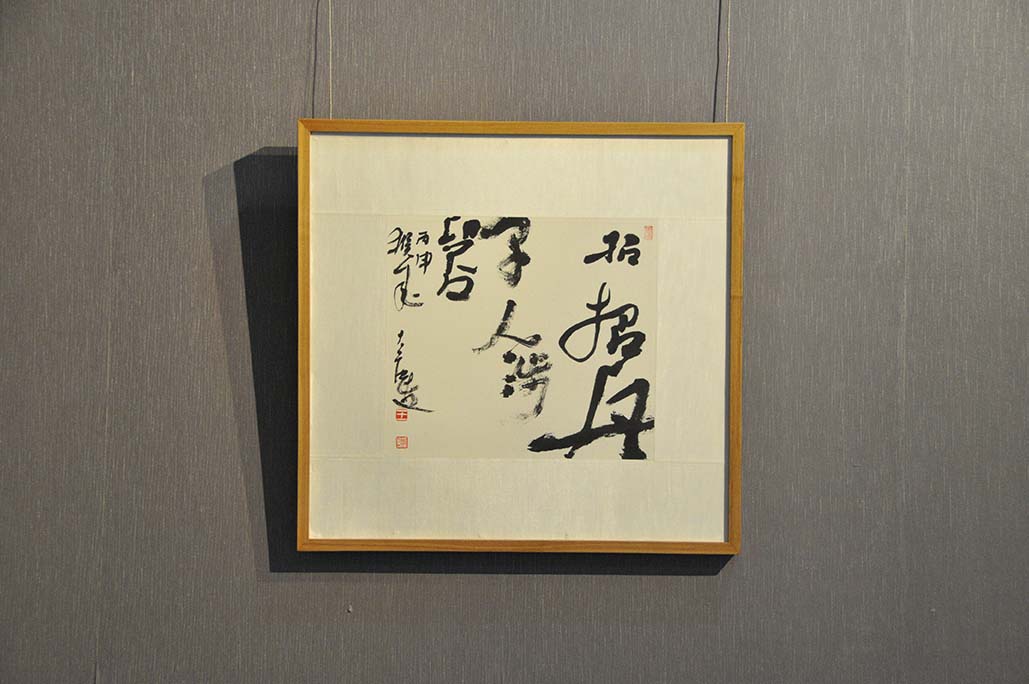 招招舟
子人涉
卬否
丙申
猴年